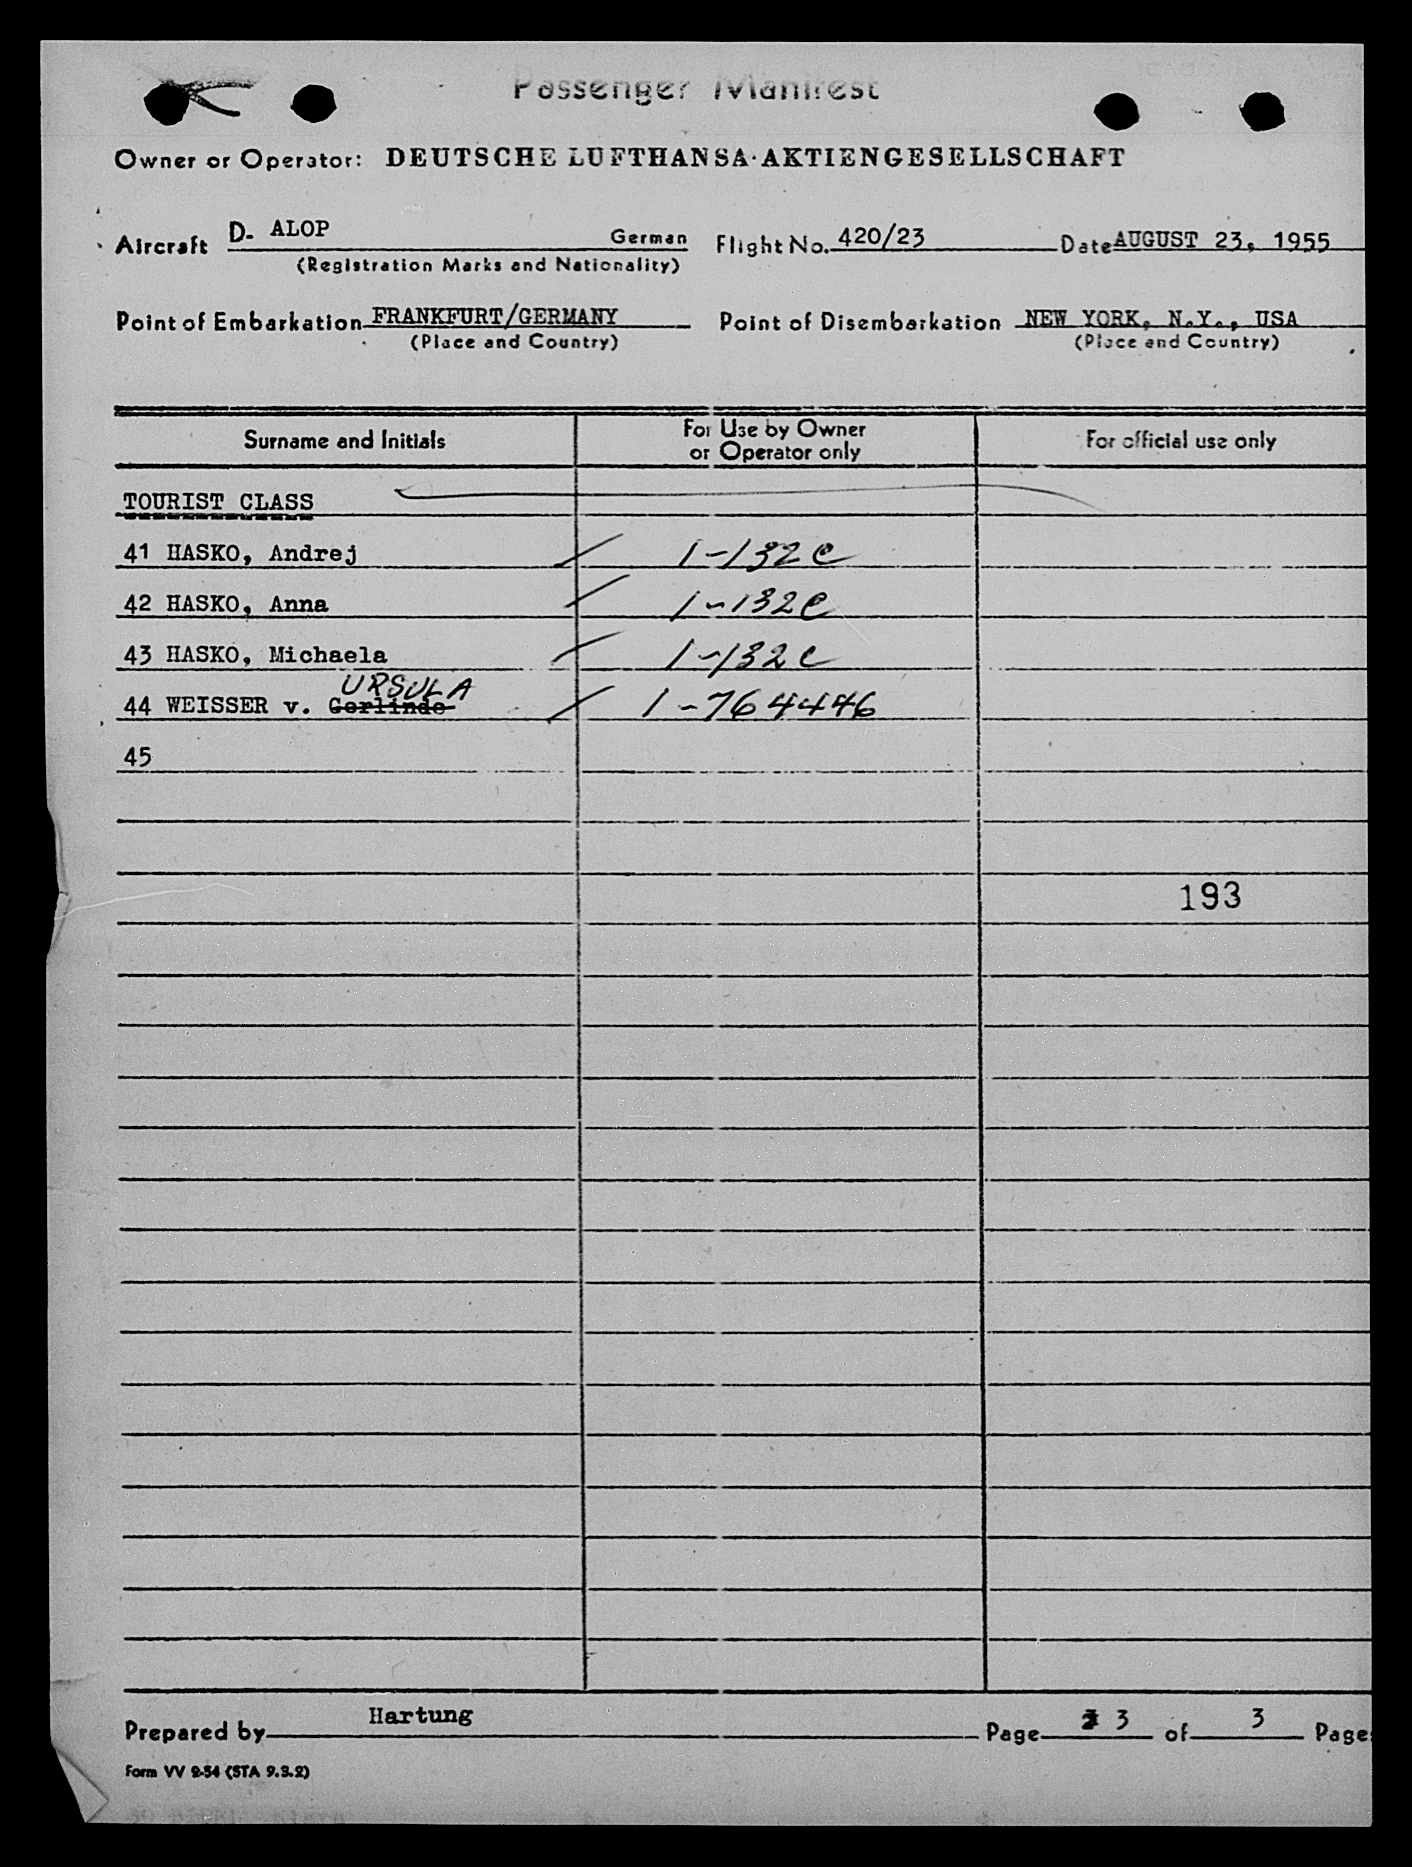 Passenger Manifest
Owner or Operator: DEUTSCHE LUFTHANSA·AKTIENGESELLSCHAFT
Aircraft D- ALOP German Flight No. 420/23 Date AUGUST 23, 1955
(Registration Marks and Nationality)
Point of Embarkation FRANKFURT/GERMANY Point of Disembarkation NEW YORK, N.Y., USA
(Place and Country) (Place and Country)
Surname and Initials For Use by Owner or Operator only For official use only
TOURIST CLASS
41 HASKO, Andrej 1-132c
42 HASKO, Anna 1-132c
43 HASKO, Michaela 1-132c
URSULA
44 WEISSER v. Gerlinde 1-764446
45
193
Prepared by Hartung Page 3 of 3 Page
Form VV 9-54 (STA 9.3.2)